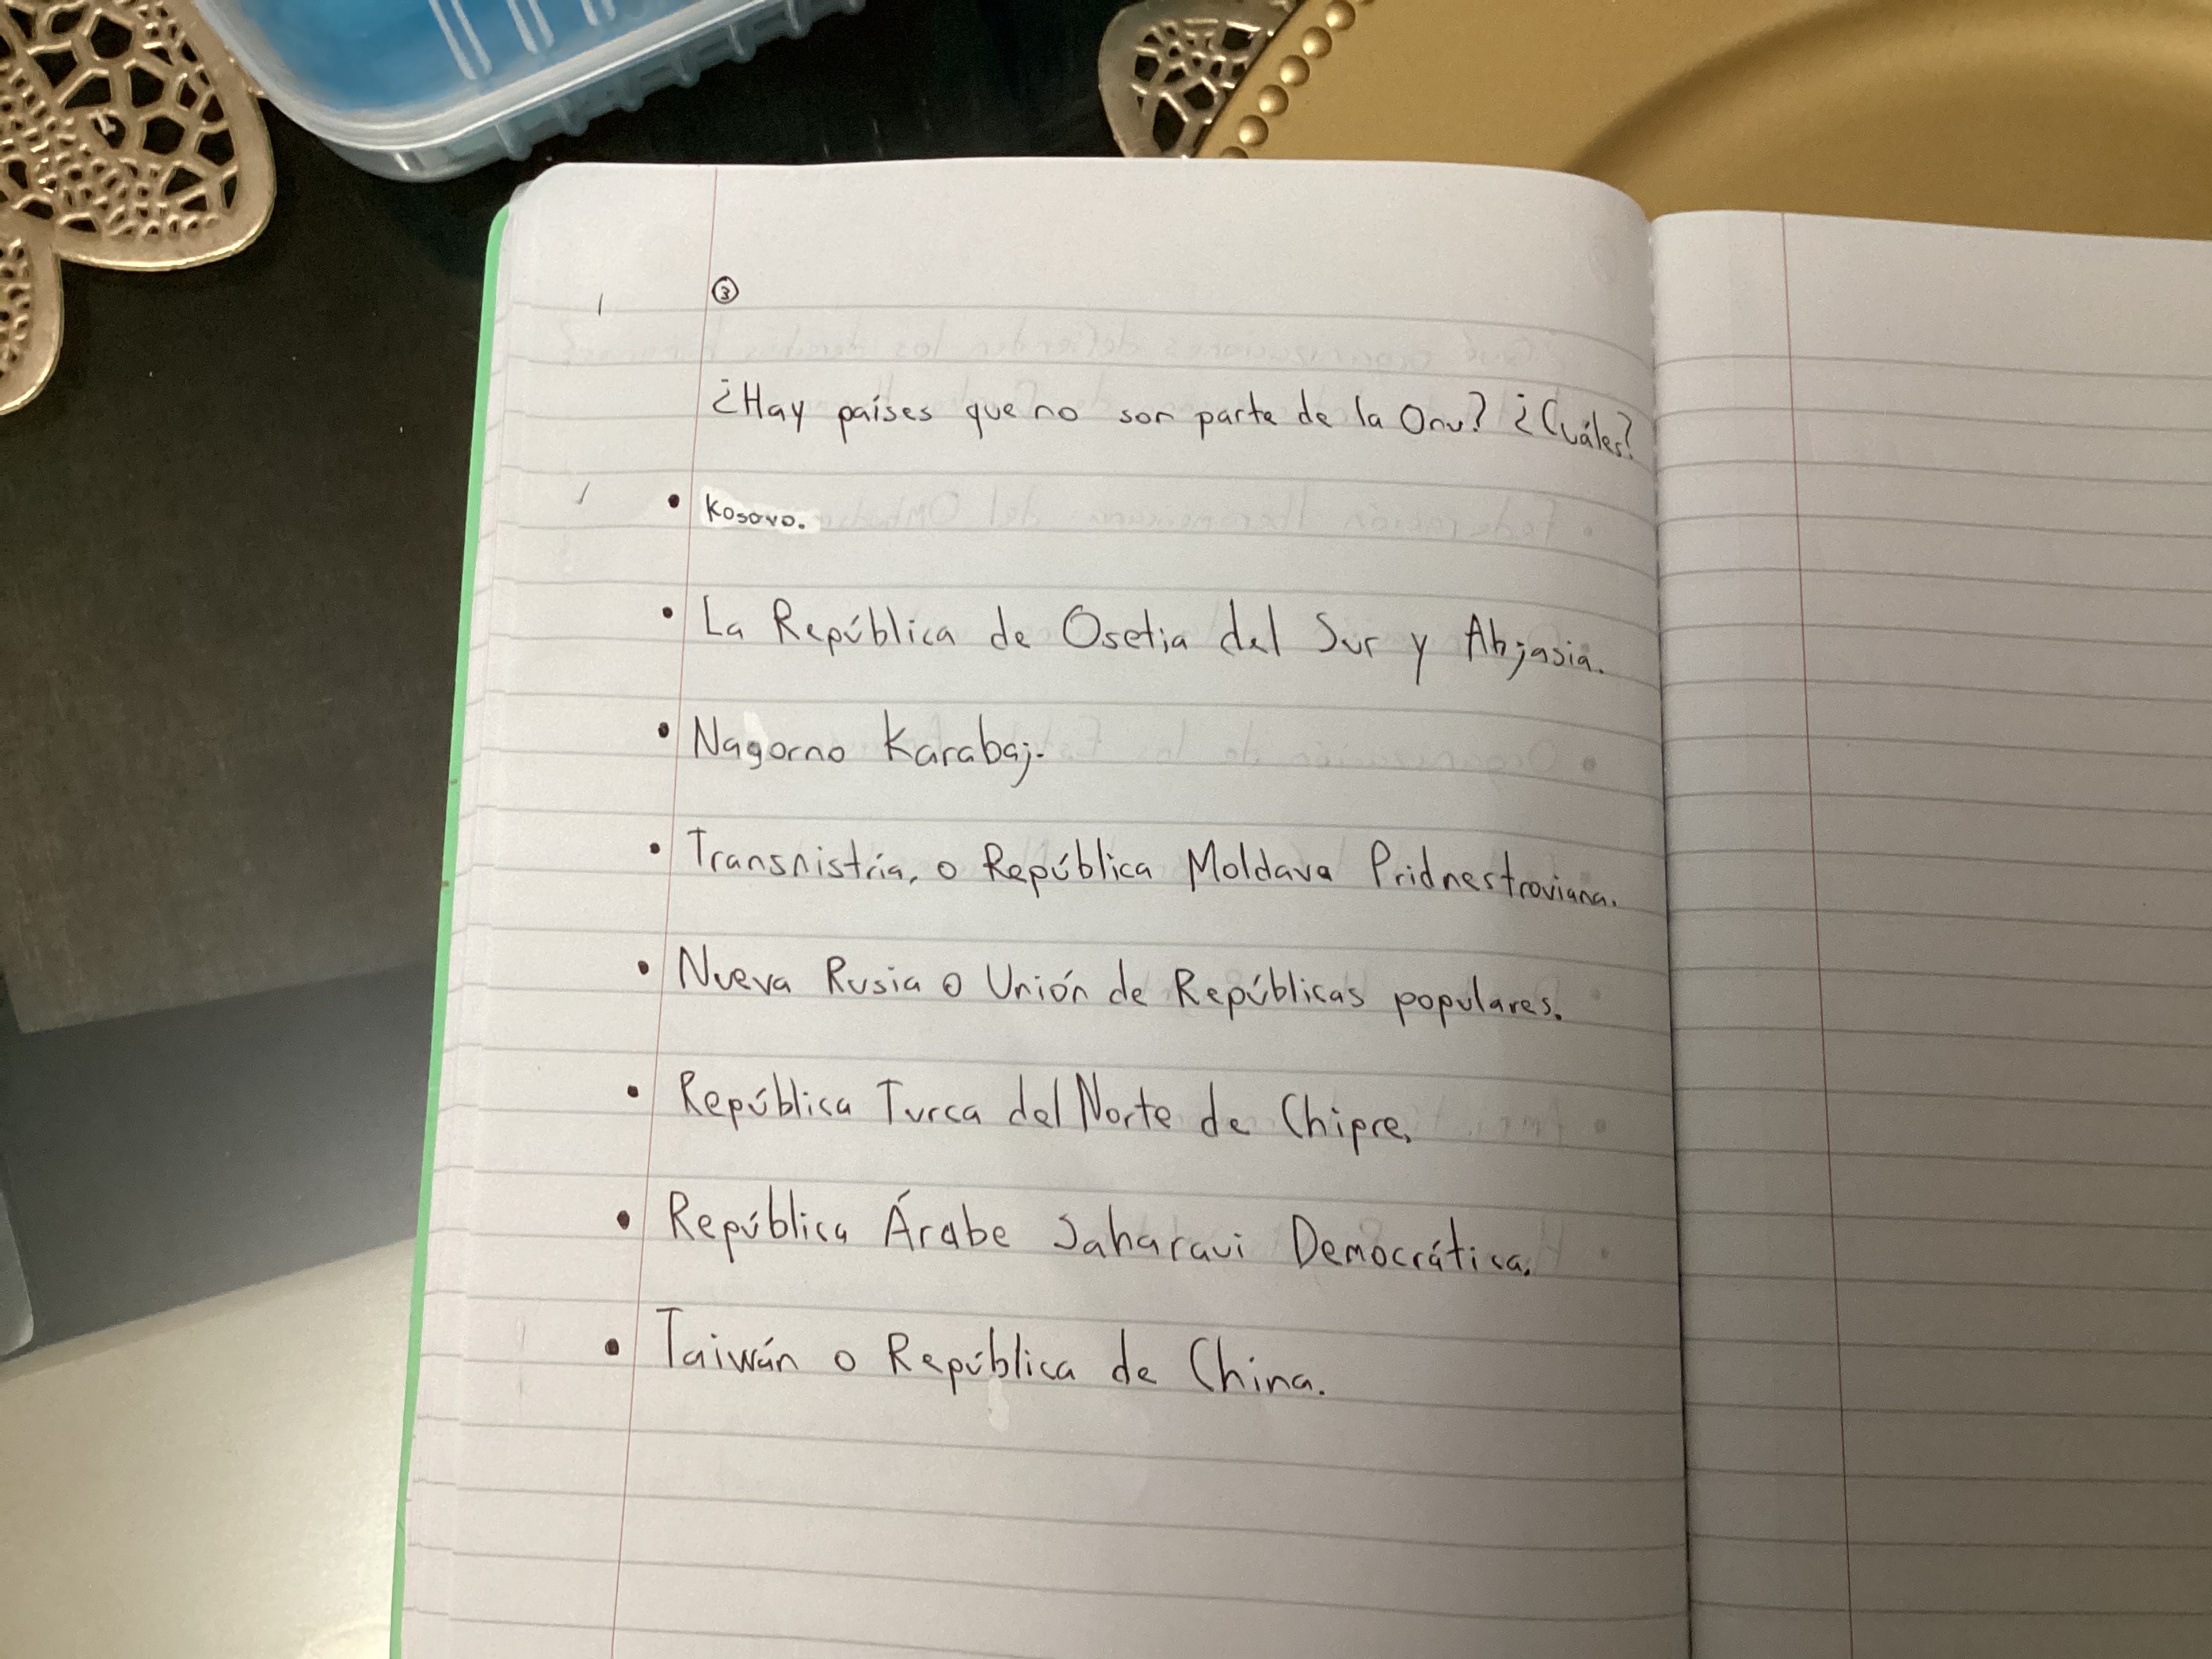 ③
¿Hay países que no son parte de la Onu? ¿Cuáles?
• Kosovo.
• La República de Osetia del Sur y Abjasia.
• Nagorno Karabaj.
• Transnistria, o República Moldava Pridnestroviana.
• Nueva Rusia o Unión de Repúblicas populares.
• República Turca del Norte de Chipre.
• República Árabe Saharaui Democrática.
• Taiwán o República de China.